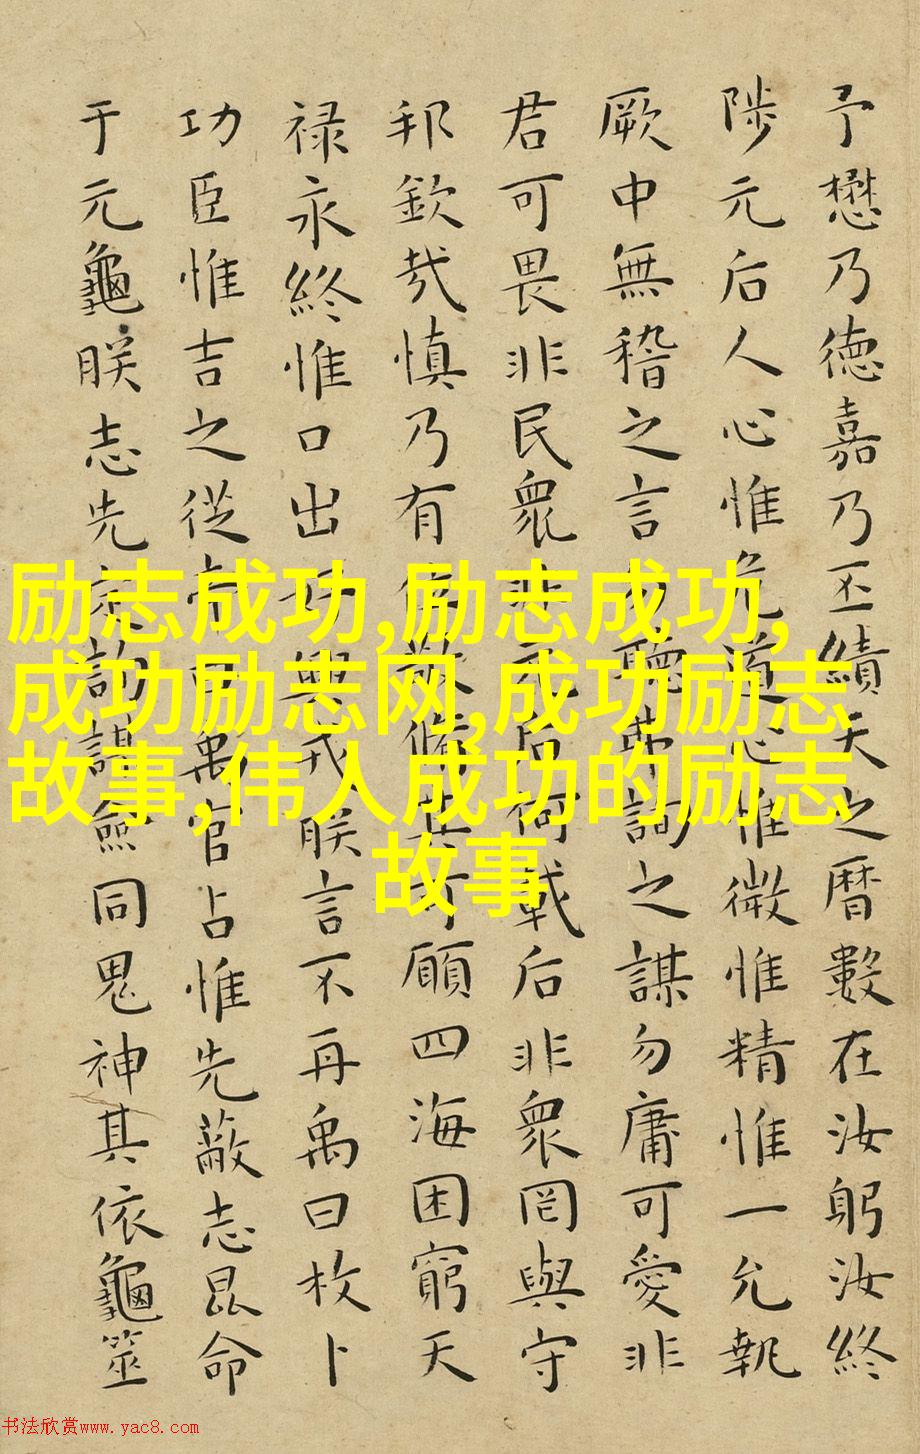 予懋乃德嘉乃丕績天之曆數在汝躬汝終
陟元后人心惟危道心惟微惟精惟一允執
厥中無稽之言勿聽弗詢之謀勿庸可愛非
君可畏非民衆非元后何戴后非衆罔與守
邦欽哉慎乃有位敬脩其可願四海困窮天
禄永終惟口出好興戎朕言不再禹曰枚卜
功臣惟吉之從帝曰禹官占惟先蔽志昆命
于元龜朕志先定詢謀僉同鬼神其依龜筮
励志成功,励志成功,
成功励志网,成功励志
故事,伟人成功的励志
故事
书法欣赏www.yac8.com